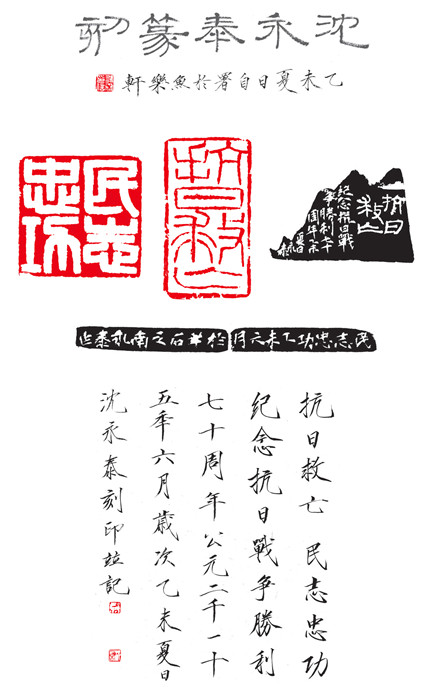 沈永泰篆刻
乙未夏日自署於魚樂軒
民志
忠功
抗日
救亡
抗日
救亡
紀念抗日戰
爭勝利七十
周年乙未
夏日
民志忠功乙未六月
抗日救亡 民志忠功
紀念抗日戰争勝利
七十周年公元二千一十
五秊六月歲次乙未夏日
沈永泰刻印竝記